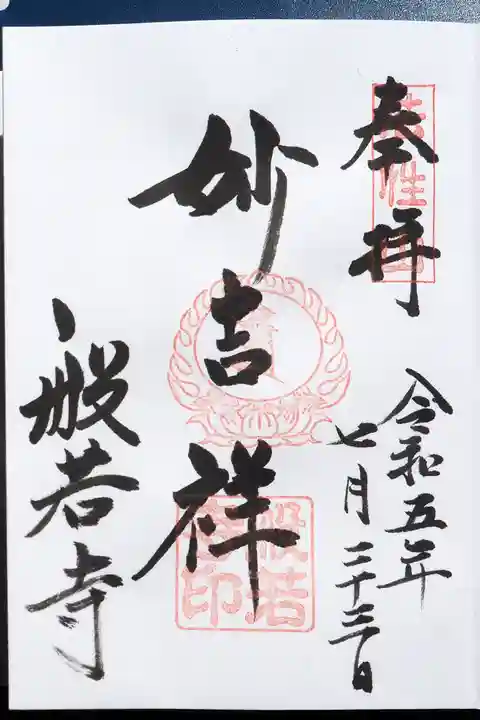 奉拝
法性山
令和五年
七月二十三日
妙吉祥
般若寺
般若寺印